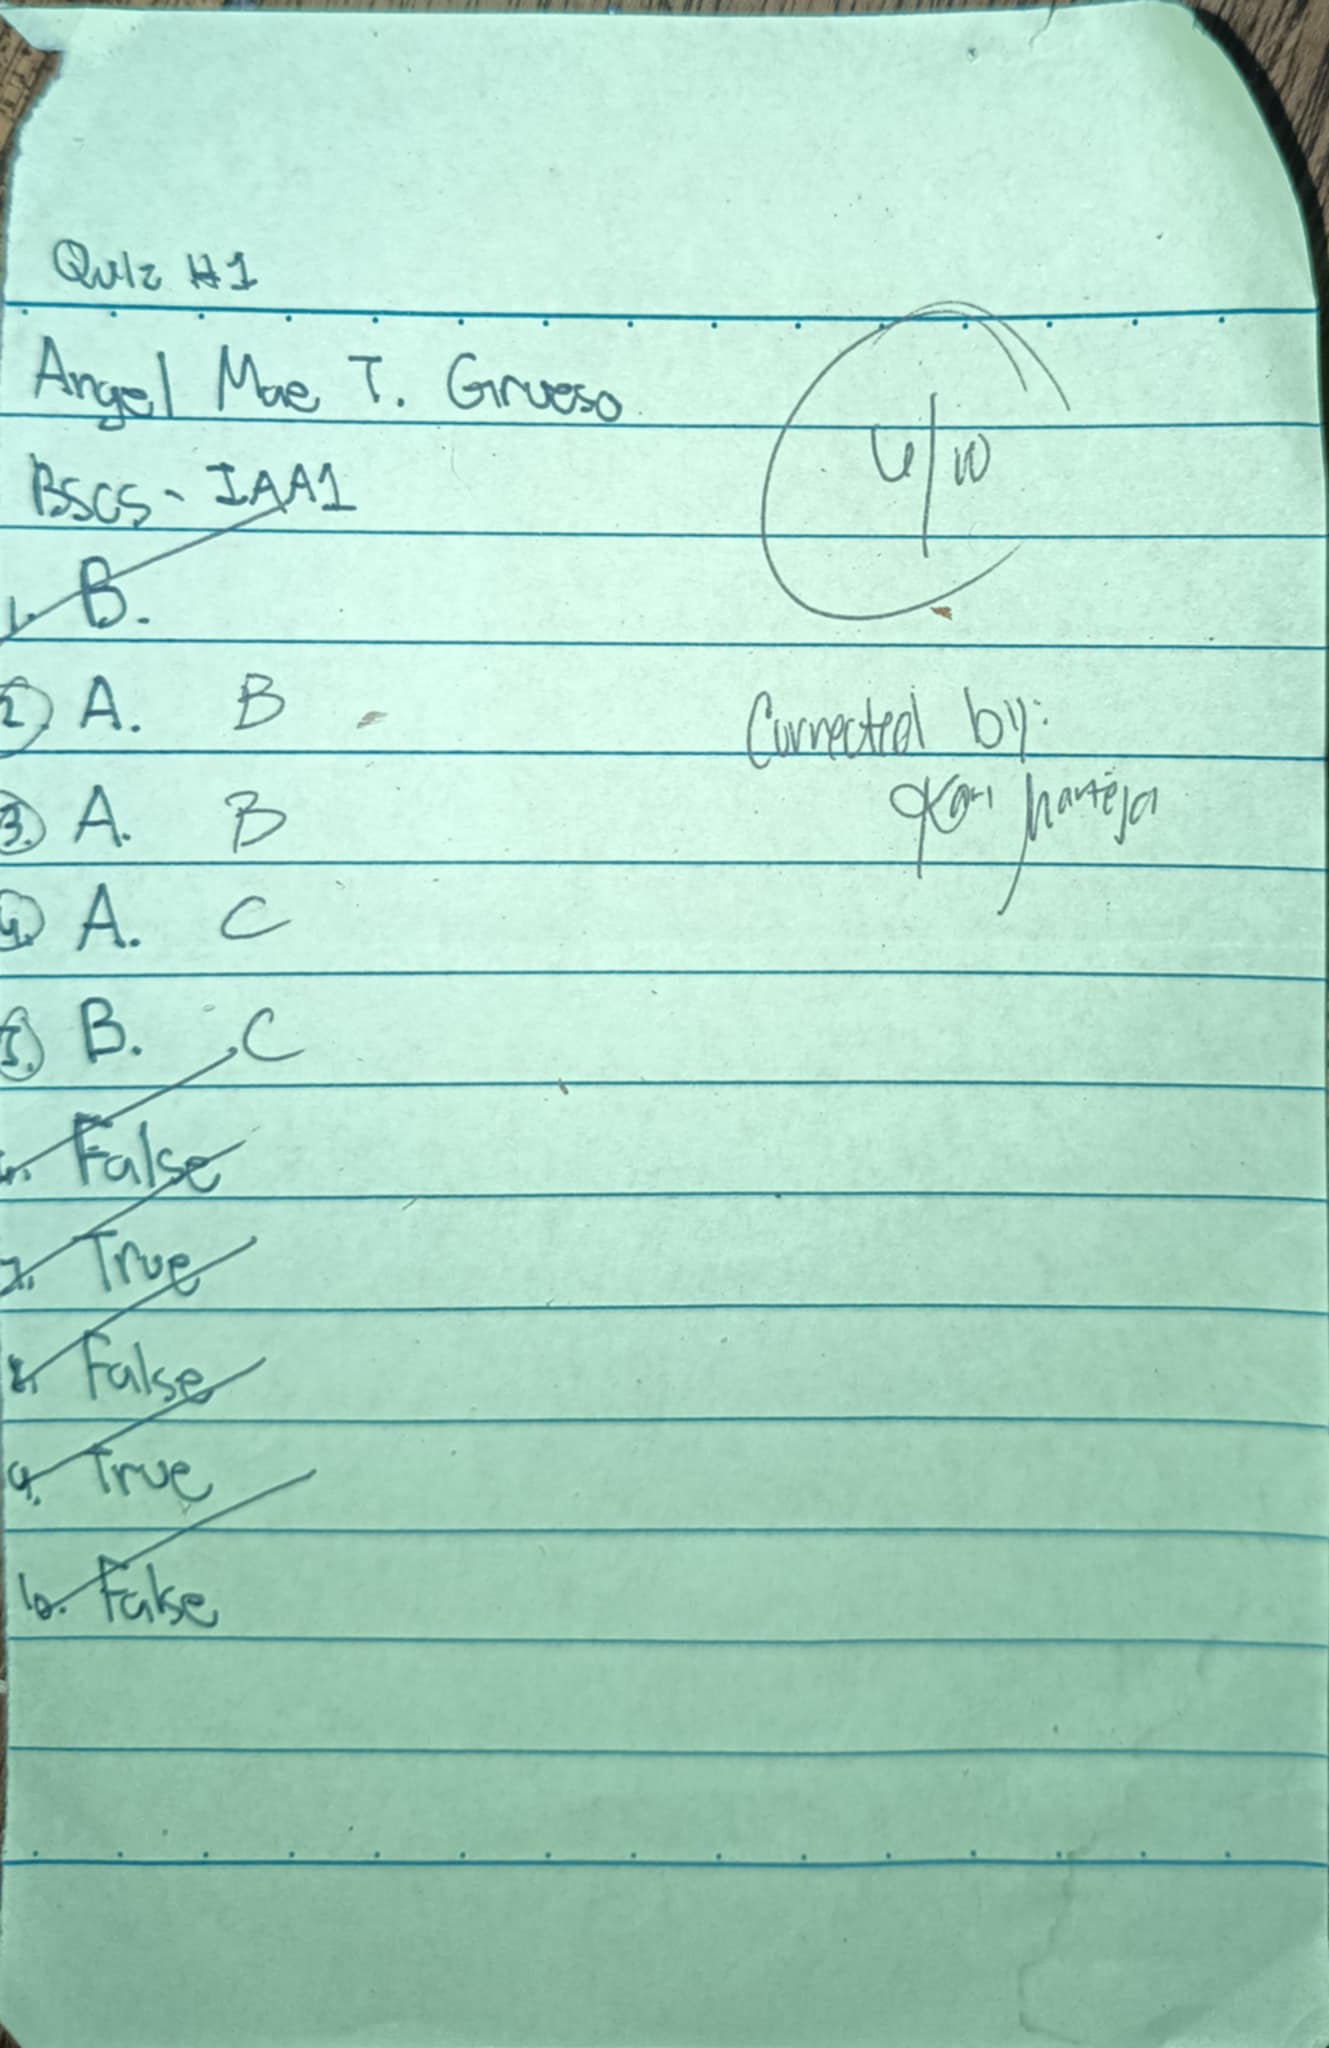 Quiz #1
Angel Mae T. Grueso
BSCS - IAA1
6/10
1. B.
2. A. B
3. A. B
4. A. C
5. B. C
6. False
7. True
8. False
9. True
10. False
Corrected by: